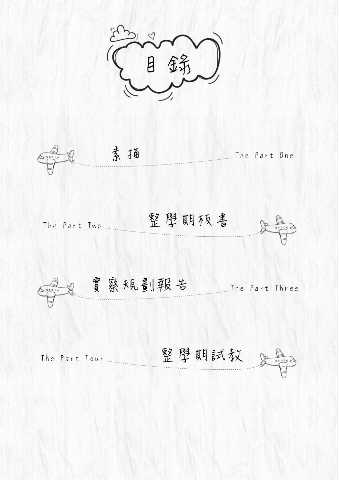 目錄
素描 The Part One
The Part Two 整學期板書
實察規劃報告 The Part Three
The Part Four 整學期試教